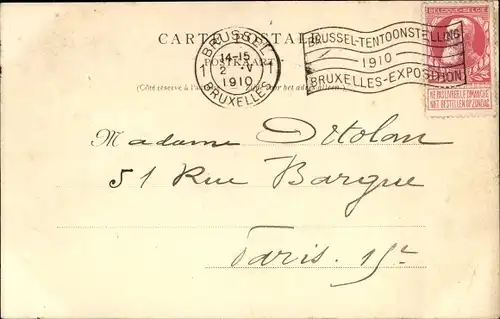 CARTE POSTALE
POSTKAART
(Côté réservé à l'adresse)
BRUSSEL
14-15
2 V
1910
1 1
BRUXELLES
BRUSSEL-TENTOONSTELLING
1910
BRUXELLES-EXPOSITION
BELGIQUE-BELGIË
NE PAS LIVRER LE DIMANCHE
NIET BESTELLEN OP ZONDAG
Madame Ortolan
51 Rue Bargue
Paris. 15e